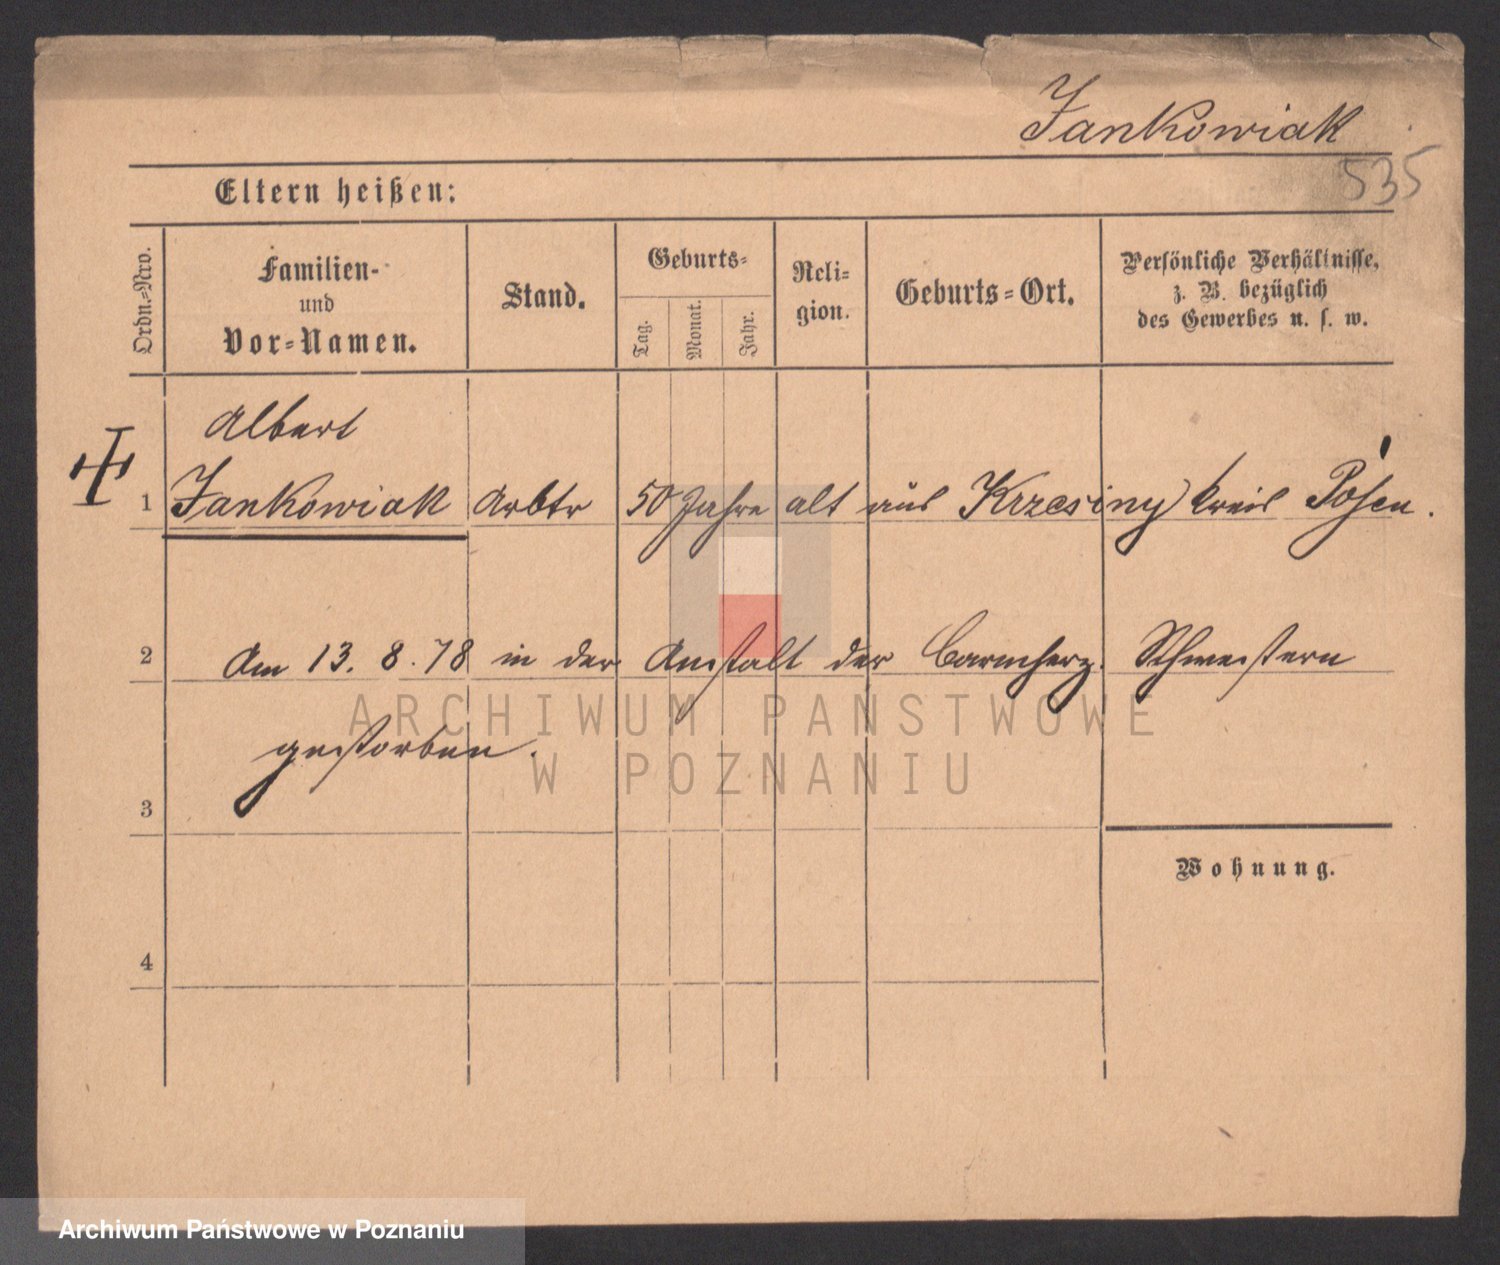 Jankowiak
535
Eltern heißen:
Ordn.-Nro.
Familien-
und
Vor-Namen.
Stand.
Geburts-
Tag.
Monat.
Jahr.
Reli-
gion.
Geburts-Ort.
Persönliche Verhältnisse,
z. B. bezüglich
des Gewerbes u. s. w.
Albert
1 Jankowiak Arbtr 50 Jahre alt aus Krzesiny Kreis Posen.
2 Am 13. 8. 78 in der Anstalt der barmherz. Schwestern
gestorben.
3
Wohnung.
4
ARCHIWUM PAŃSTWOWE
W POZNANIU
Archiwum Państwowe w Poznaniu